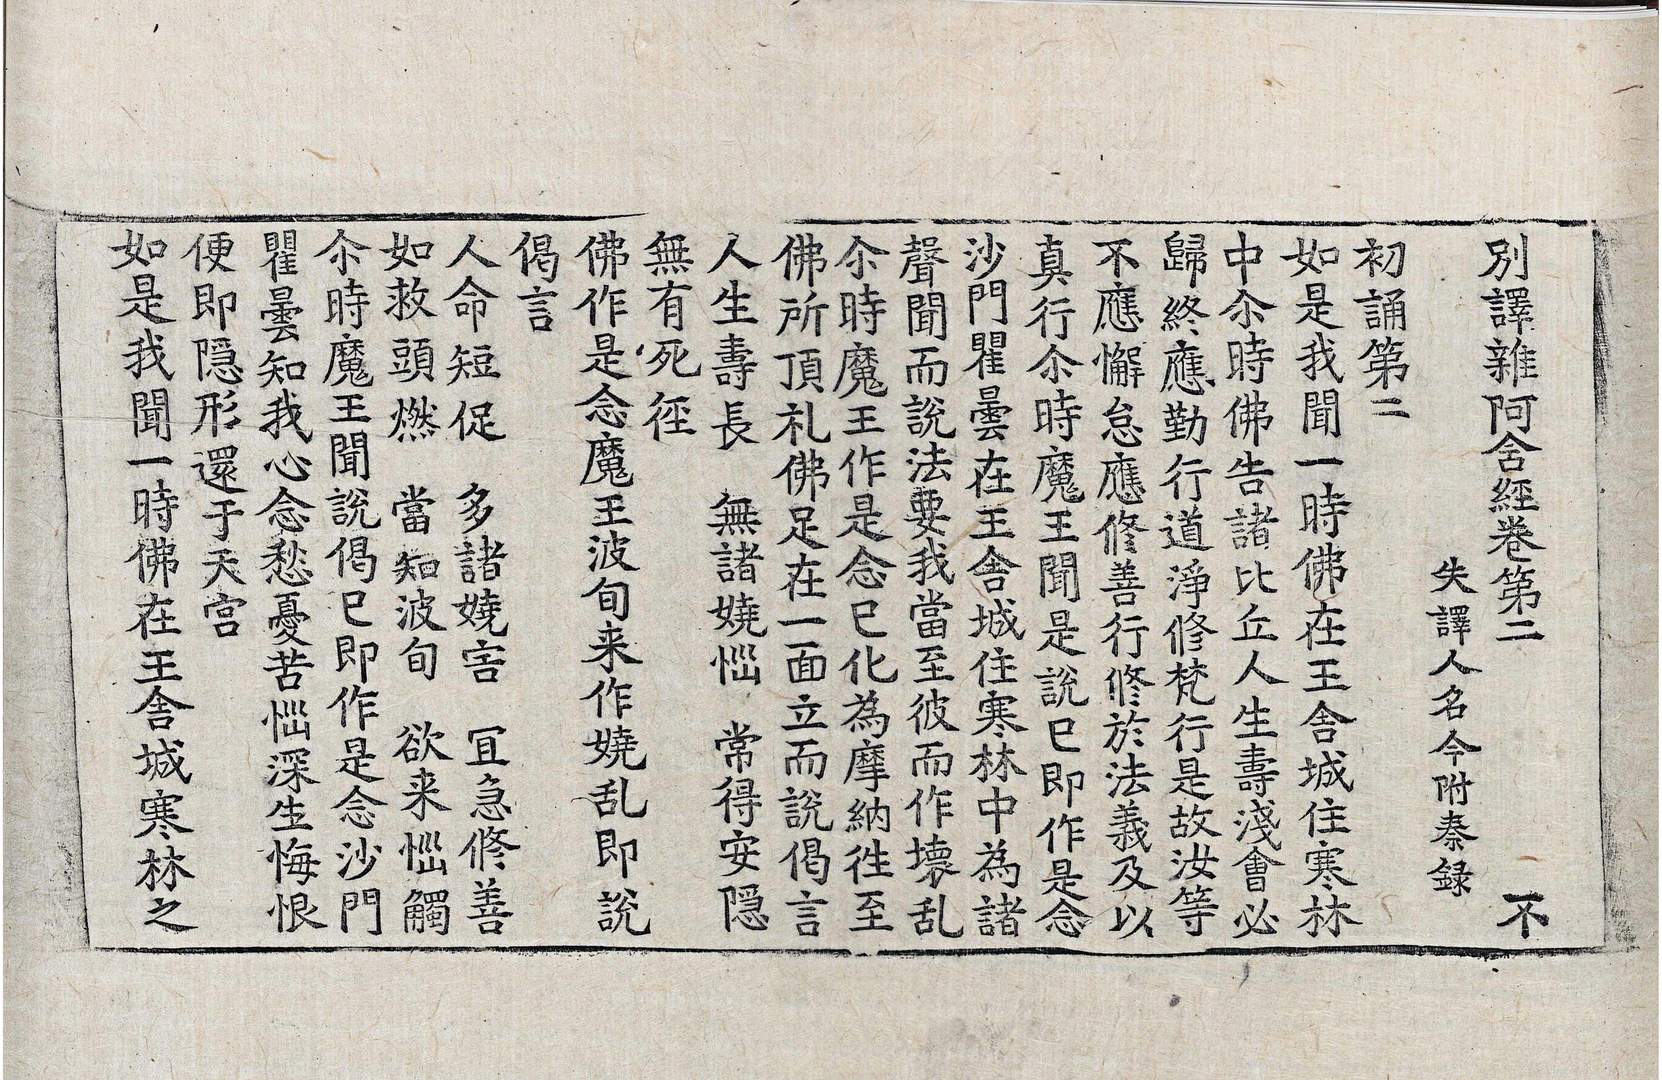 別譯雜阿含經卷第二 不
失譯人名今附秦録
初誦第二
如是我聞一時佛在王舍城住寒林
中尒時佛告諸比丘人生壽淺會必
歸終應勤行道淨修梵行是故汝等
不應懈怠應修善行修於法義及以
真行尒時魔王聞是說已即作是念
沙門瞿曇在王舍城住寒林中為諸
聲聞而說法要我當至彼而作壞乱
尒時魔王作是念已化為摩納徃至
佛所頂礼佛足在一面立而說偈言
人生壽長 無諸嬈惱 常得安隱
無有死徑
佛作是念魔王波旬来作嬈乱即說
偈言
人命短促 多諸嬈害 冝急修善
如救頭燃 當知波旬 欲来惱觸
尒時魔王聞說偈已即作是念沙門
瞿曇知我心念愁憂苦惱深生悔恨
便即隱形還于天宮
如是我聞一時佛在王舍城寒林之